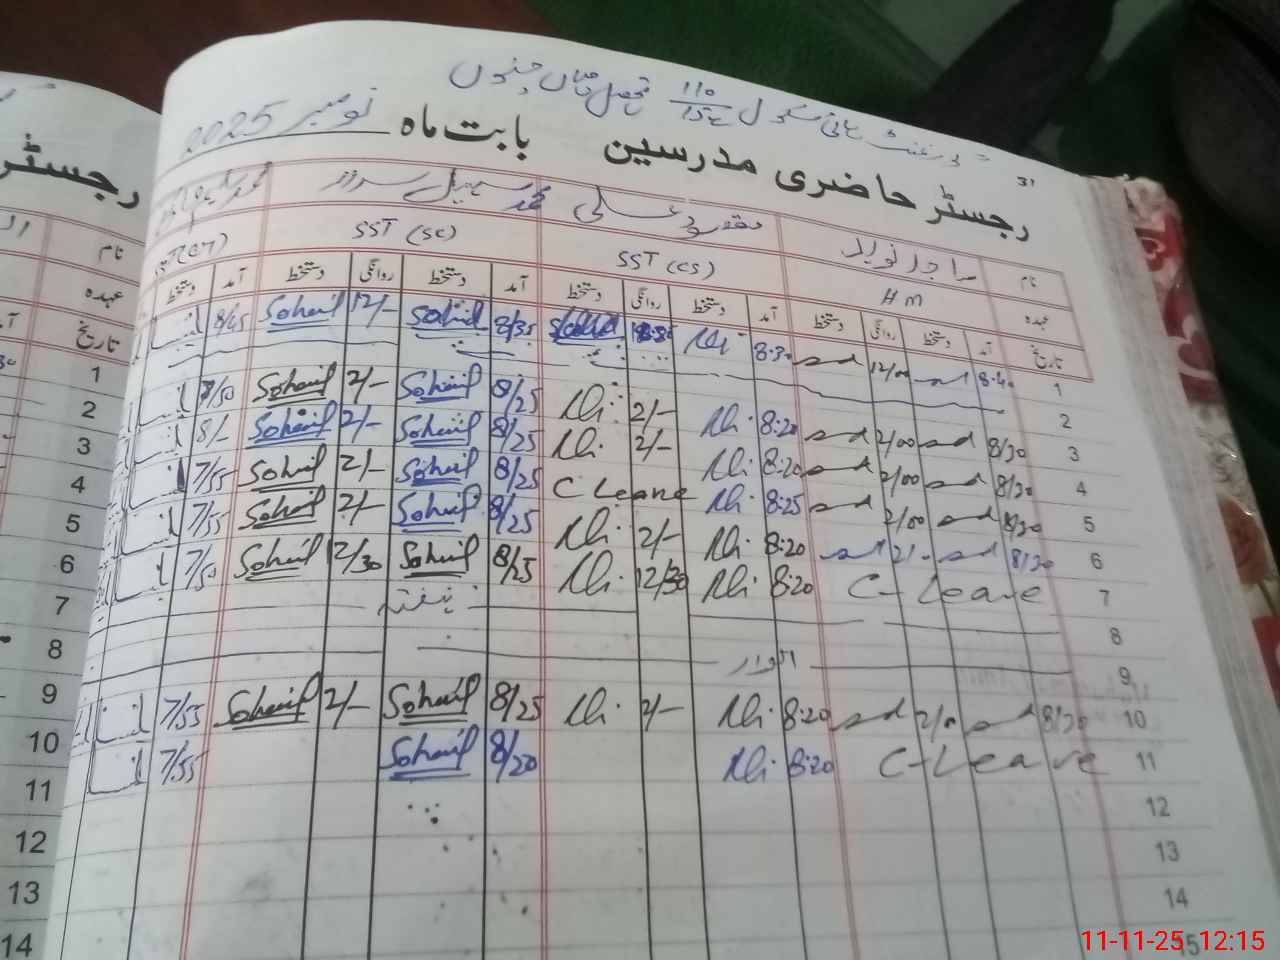 گورنمنٹ ہائی سکول 110/15L تحصیل میاں چنوں
31
رجسٹر حاضری مدرسین بابت ماہ نومبر 2025
رجسٹر
نام
سہیل سرور
نام
عہدہ HM SST (CS) SST (SC)
عہدہ
تاریخ آمد دستخط روانگی دستخط آمد دستخط روانگی دستخط آمد دستخط روانگی دستخط آمد دستخط
تاریخ
1 8:40 12/00 8:30 8/35 Sohail 12/- Sohail 8/45
1
2
2
3 8/30 sd 2/00 sd 8:20 Ali 2/- Ali 8/25 Sohail 2/- Sohail 7/50
3
4 8/30 sd 2/00 sd 8:20 Ali 2/- Ali 8/25 Sohail 2/- Sohail 8/-
4
5 8/30 sd 2/00 sd 8:25 Ali C Leave 8/25 Sohail 2/- Sohail 7/55
5
6 8/30 sd 2/- sd 8:20 Ali 2/- Ali 8/25 Sohail 2/- Sohail 7/55
6
7 C-Leave 8:20 Ali 12/30 Ali 8/25 Sohail 12/30 Sohail 7/50
7
8 ہفتہ
8
9 اتوار
9
10 8/30 sd 2/0 sd 8:20 Ali 2/- Ali 8/25 Sohail 2/- Sohail 7/55
10
11 C-Leave 8:20 Ali 8/20 Sohail 7/55
11
12
12
13
13
14
14
15
11-11-25 12:15